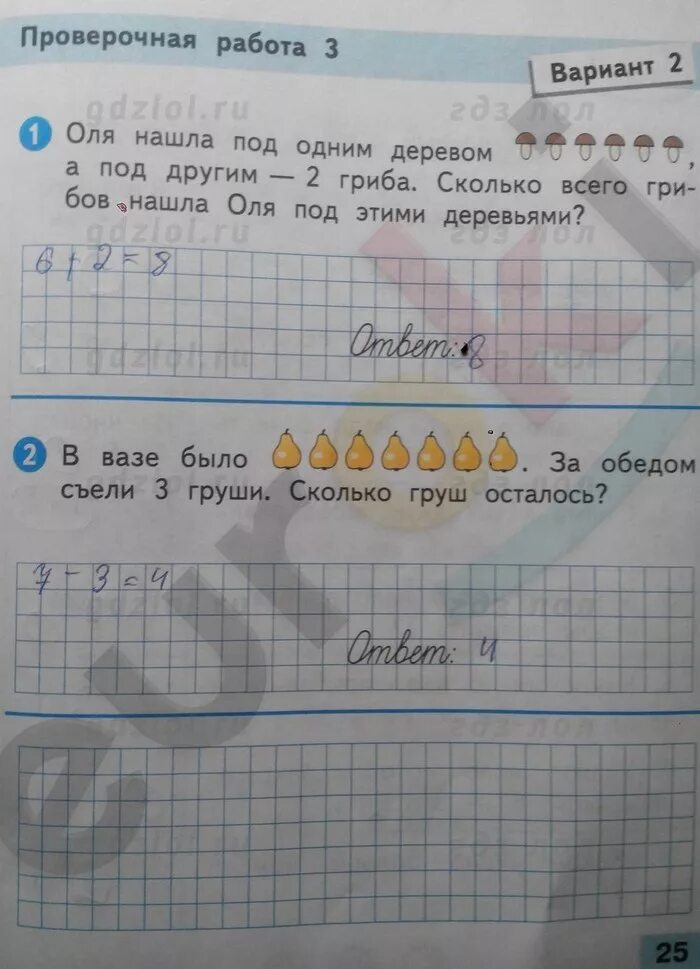 Проверочная работа 3
Вариант 2
gdzlol.ru
1 Оля нашла под одним деревом ,
а под другим — 2 гриба. Сколько всего гри-
бов нашла Оля под этими деревьями?
gdzlol.ru
6+2=8
Ответ: 8
gdzlol.ru
2 В вазе было . За обедом
съели 3 груши. Сколько груш осталось?
7-3=4
gdzlol.ru
Ответ: 4
euroki
25